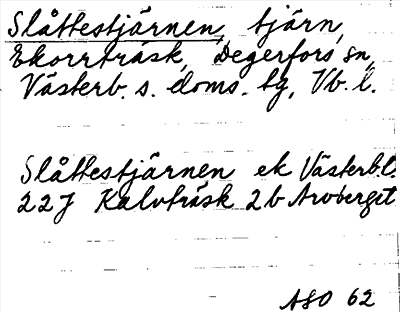 Slåttestjärnen, tjärn,
Ekorrträsk, Degerfors sn,
Västerb. s. doms. tg, Vb. l.
Slåttestjärnen ek Västerb.l.
22J Kalvträsk 2b Aroberget
ASO 62